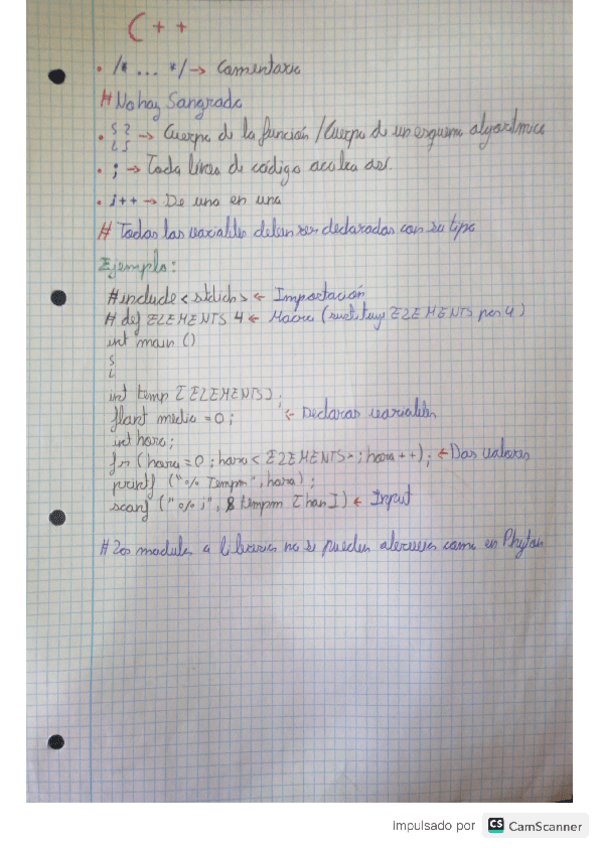 C++
• /* ... */ → Comentario
# No hay Sangrado
• { } → Cuerpo de la función / Cuerpo de un esquema algorítmico
• ; → Toda línea de código acaba así.
• i++ → De uno en uno
# Todas las variables deben ser declaradas con su tipo
Ejemplo:
#include <stdioh> ← Importación
# def ELEMENTS 4 ← Macro (sustituye ELEMENTS por 4)
int main ()
{
int temp [ELEMENTS];
float media = 0; ← Declaras variables
int hora;
for (hora = 0; hora < ELEMENTS; hora ++); ← Das valores
printf ("% Tempm", hora);
scanf ("% i", & tempm [hora]) ← Input
# Los modulos o librerias no se pueden como en Phyton
Impulsado por CS CamScanner